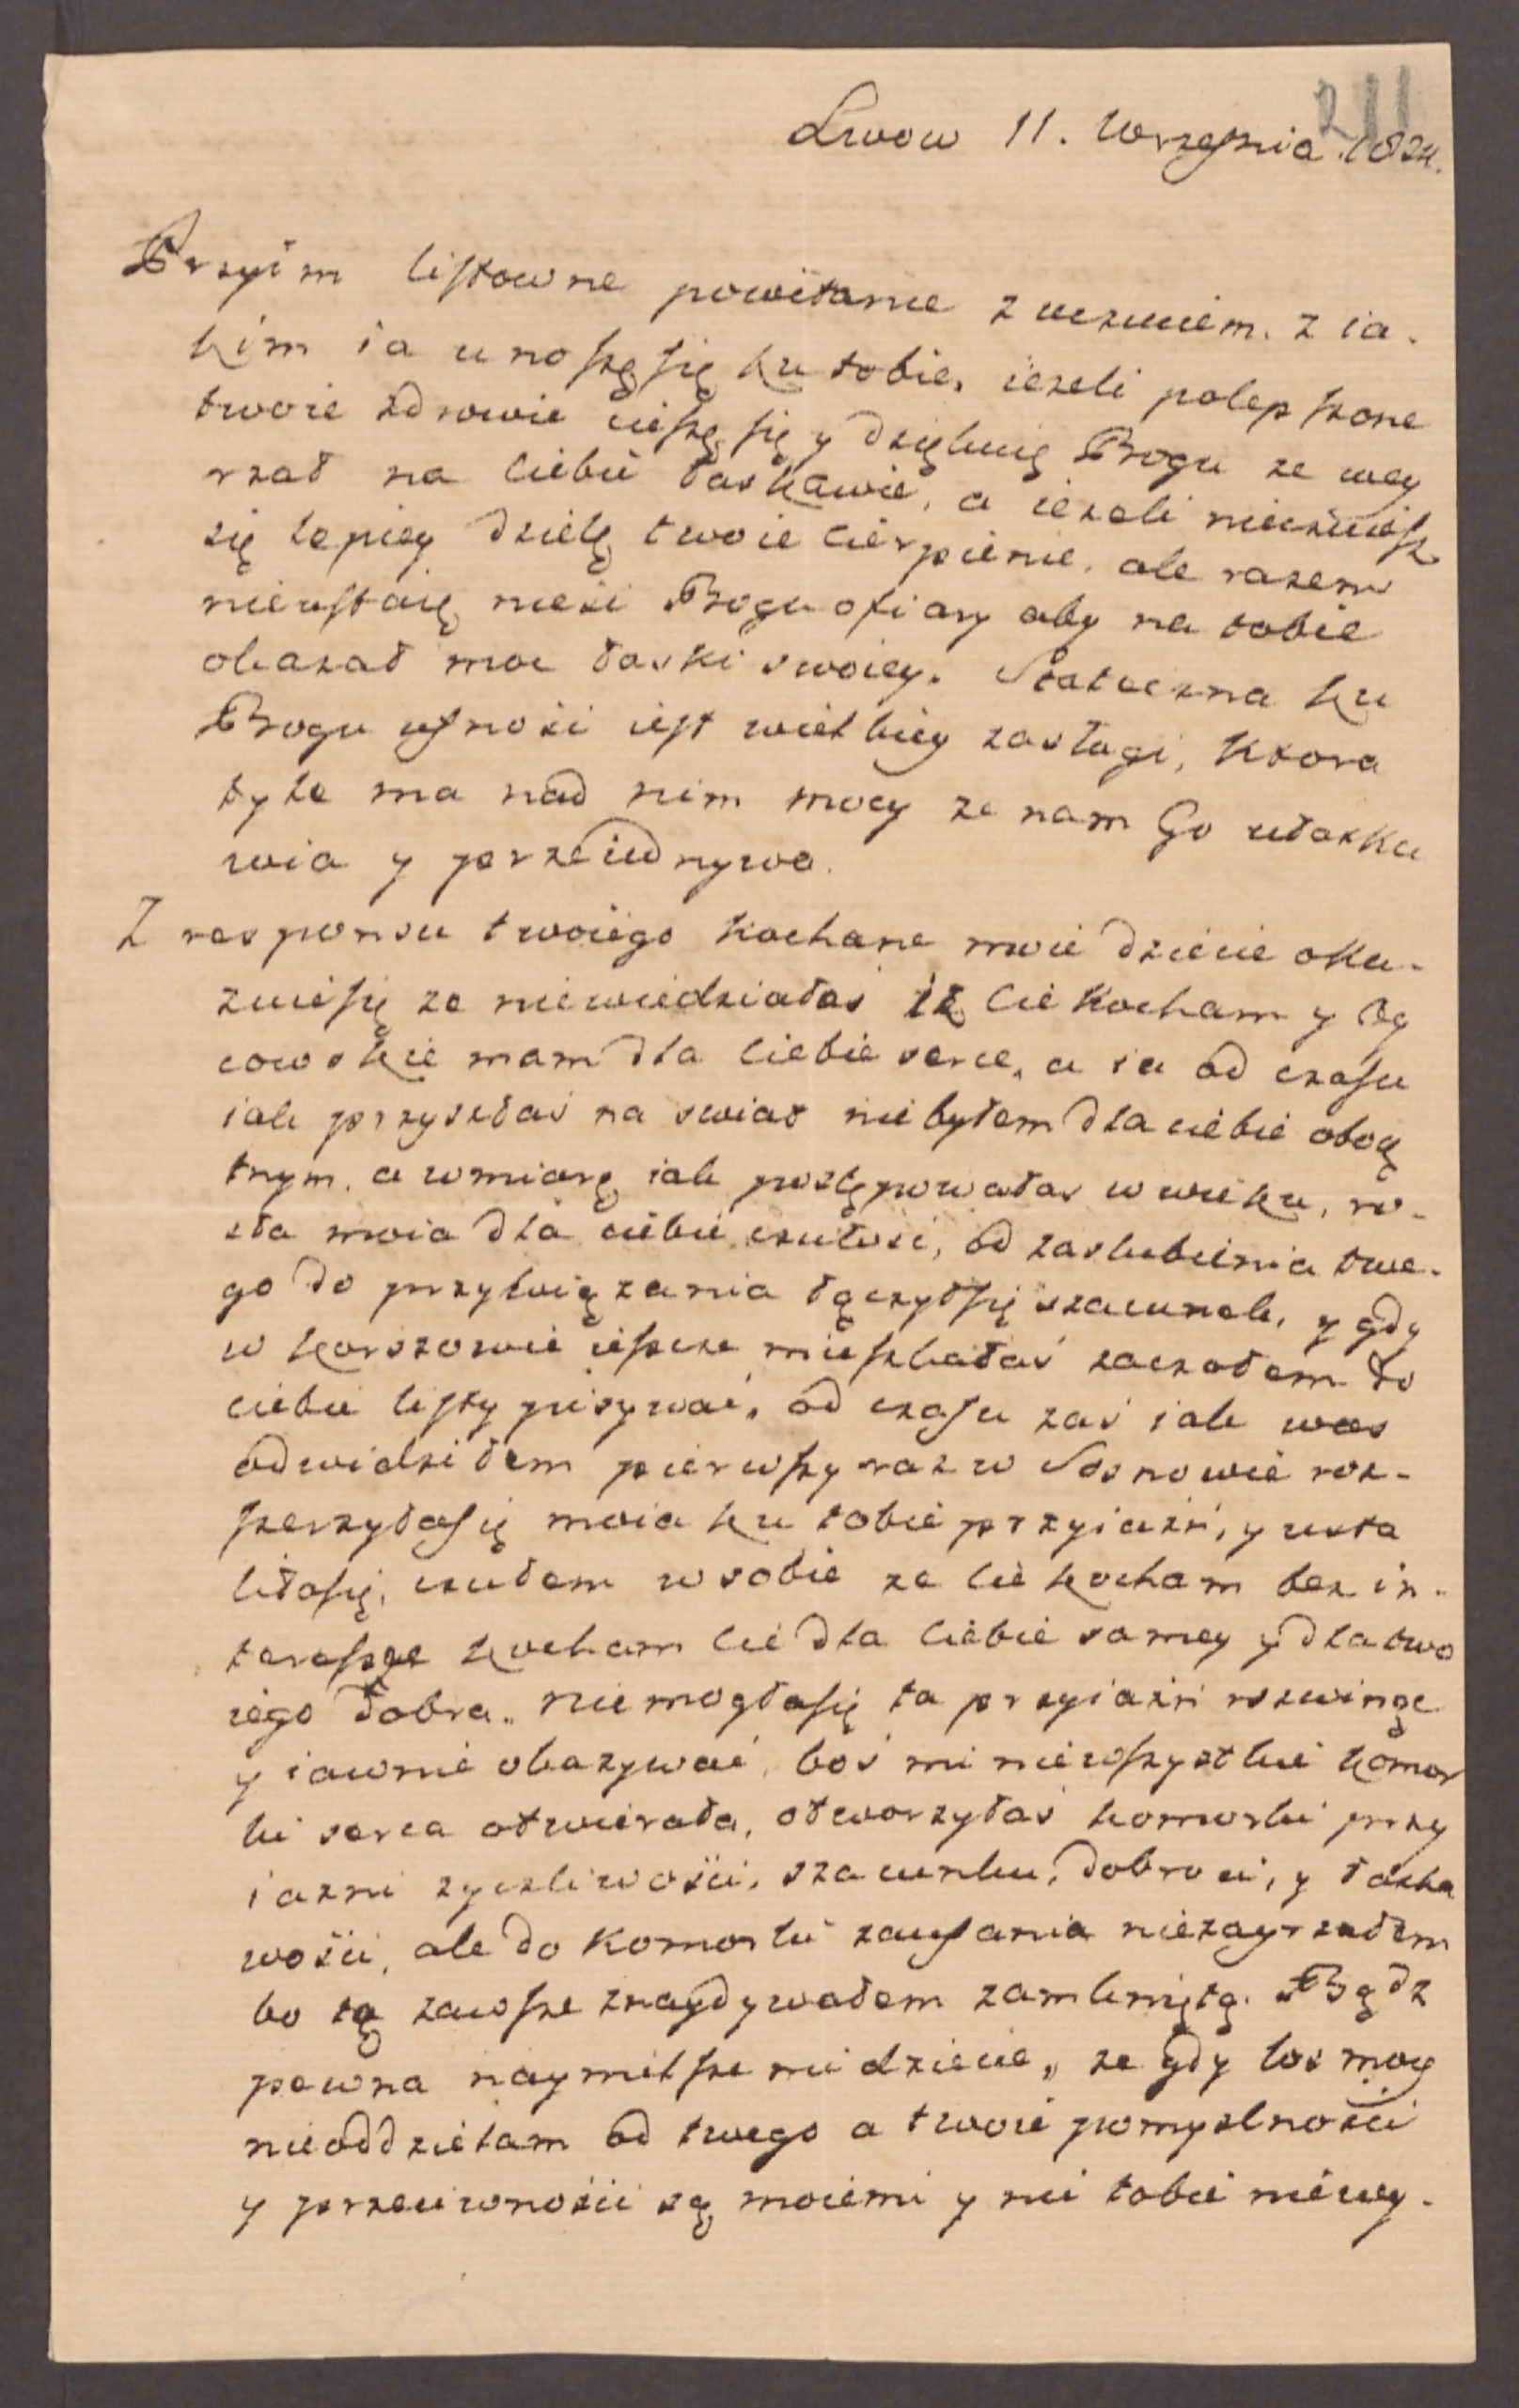 211
Lwow 11. Wrzesnia 1824.
Przyim listowne powitanie z uczuciem. z ia-
kim ia unoszę się ku tobie, iezeli polepszone
twoie zdrowie cieszę się y dziękuię Bogu ze wey
rzał na ciebie łaskawie, a iezeli nieczuiesz
się lepiey dzielę twoie cierpienie, ale razem
nieustaię nieść Bogu ofiary aby na tobie
okazał moc łaski swoiey. Stateczna ku
Bogu ufność iest wielkiey zasługi, ktora
tyle ma nad nim mocy ze nam Go ułaska
wia y przeiednywa.
Z responsu twoiego kochane moie dziecie oka-
zuiesię ze niewiedziałaś iż cie kocham y Oy
cowskie mam dla ciebie serce, a ia od czasu
iak przyszłaś na swiat niebyłem dla ciebie oboię
tnym, a wmiarę iak postępowałas w wieku, ro-
sła moia dla ciebie czułość, od zaslubienia twe-
go do przywiązania łączyłsię szacunek, y gdy
w Korszowie ieszcze mieszkałaś zaczołem do
ciebie listy pisywać, od czasu zaś iak was
odwidziłem pierwszy raz w Sosnowie roz-
szerzyłasię moia ku tobie przyiaźń, y usta
liłasię, czułem w sobie ze cie kocham bez in-
teressge kocham cie dla ciebie samey y dla two
iego dobra. niemogłasię ta przyiaźń rozwinąc
y iawnie okazywać, boś mi niewszystkie komor
ki serca otwierała, otworzyłaś komorki przy
iazni zyczliwości, szacunku, dobroci, y łaska
wości, ale do komorki zaufania niezayrzałem
bo tę zawsze znaydywałem zamkniętą. Bądz
pewna naymilsze mi dziecie, ze gdy los moy
nieoddzielam od twego a twoie pomyslności
y przeciwności są moiemi y nie tobie niewy-